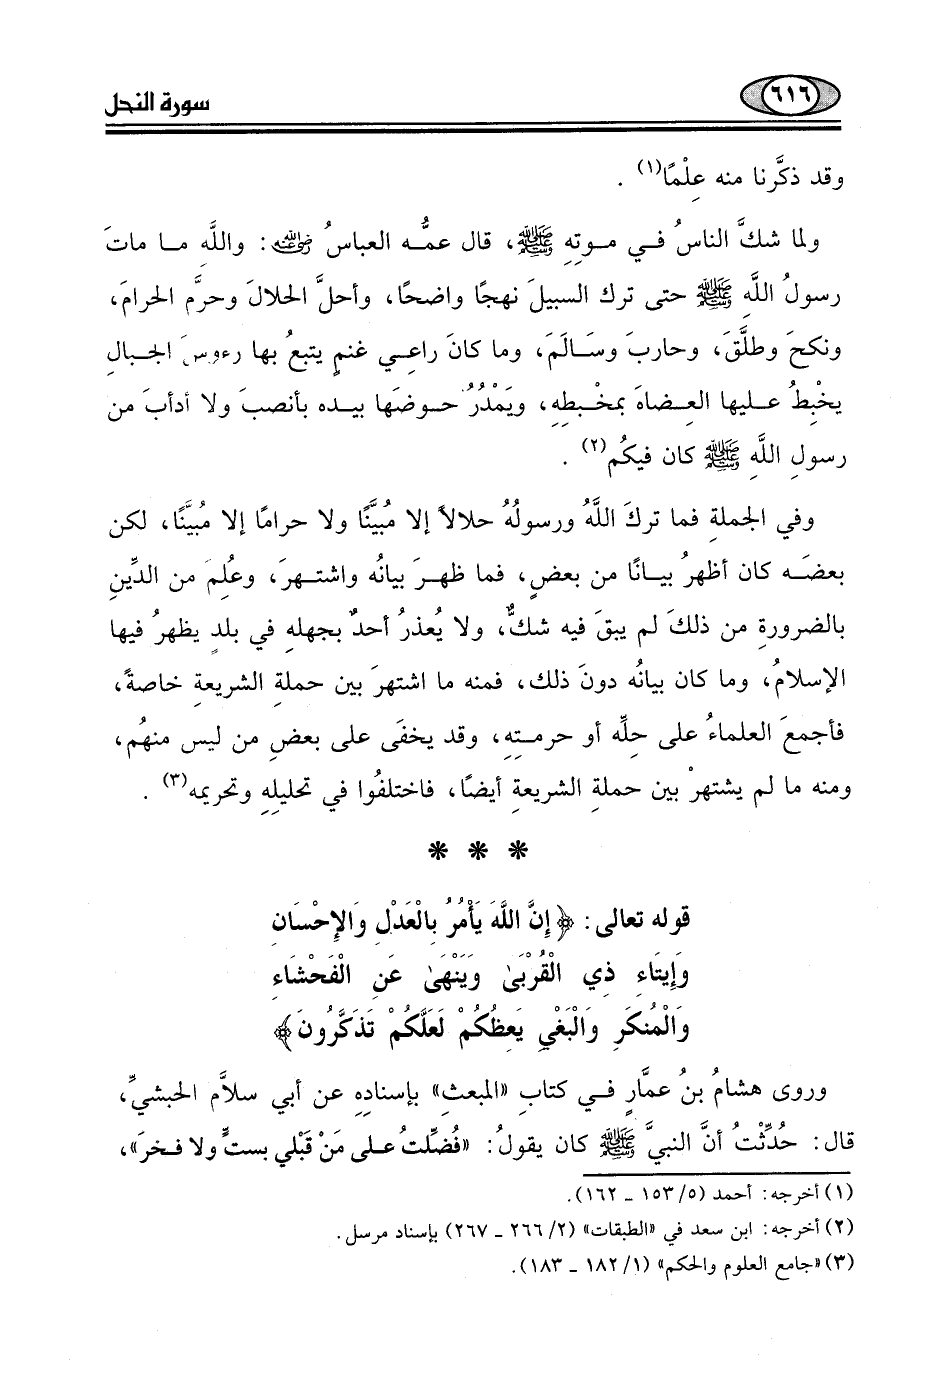 ٦١٦
سورة النحل
وقد ذكَّرنا منه علِمًا(١) .
ولما شكَّ الناسُ فـي مـوتِهِ ﷺ، قال عمُّـه العباسُ رضي الله عنه: واللَّهِ مـا ماتَ
رسولُ اللَّهِ ﷺ حتى ترك السبيلَ نهجًا واضحًا، وأحلَّ الحلالَ وحرَّم الحرامَ،
ونكحَ وطلَّقَ، وحاربَ وسَـالَمَ، وما كانَ راعـي غنمٍ يتبعُ بها رءوسَ الجبـالِ
يخْبِطُ عليها العِـضاهَ بمخْـبطِهِ، ويَمْدُرُ حـوضَها بيـده بأنصـبَ ولا أدأبَ من
رسولِ اللَّهِ ﷺ كان فيكُم(٢) .
وفي الجملةِ فما تركَ اللَّهُ ورسولُهُ حلالاً إلا مُبيَّنًا ولا حرامًا إلا مُبيَّنًا، لكن
بعضَـه كان أظهرُ بيـانًا من بعضٍ، فما ظهـرَ بيانُه واشتهـرَ، وعُلِمَ من الدِّينِ
بالضرورةِ من ذلكَ لم يبقَ فيه شكٌّ، ولا يُعذرُ أحدٌ بجهلِهِ في بلدٍ يظهرُ فيها
الإسلامُ، وما كان بيانُه دونَ ذلك، فمنه ما اشتهرَ بين حملةِ الشريعةِ خاصةً،
فأجمعَ العلماءُ على حلِّه أو حرمـتِهِ، وقد يخفَى على بعضِ من ليس منهُم،
ومنه ما لم يشتهرْ بين حملةِ الشريعةِ أيضًا، فاختلفُوا في تحليلِهِ وتحريمه(٣) .
* * *
قوله تعالى: ﴿إِنَّ اللَّهَ يَأْمُرُ بِالْعَدْلِ وَالإِحْسَانِ
وَإِيتَاءِ ذِي الْقُرْبَىٰ وَيَنْهَىٰ عَنِ الْفَحْشَاءِ
وَالْمُنكَرِ وَالْبَغْيِ يَعِظُكُمْ لَعَلَّكُمْ تَذَكَّرُونَ﴾
وروى هشامُ بنُ عمَّارٍ فـي كتابِ «المبعث» بإسنادِهِ عن أبي سلاَّم الحبشيِّ،
قال: حُدِّثْتُ أنَّ النبيَّ ﷺ كان يقولُ: «فُضِّلتُ علـى مَنْ قَبْلي بستٍّ ولا فـخرَ»،
(١) أخرجه: أحمد (٥/ ١٥٣ ـ ١٦٢).
(٢) أخرجه: ابن سعد في «الطبقات» (٢/ ٢٦٦ ـ ٢٦٧) بإسناد مرسل.
(٣) «جامع العلوم والحكم» (١/ ١٨٢ ـ ١٨٣).